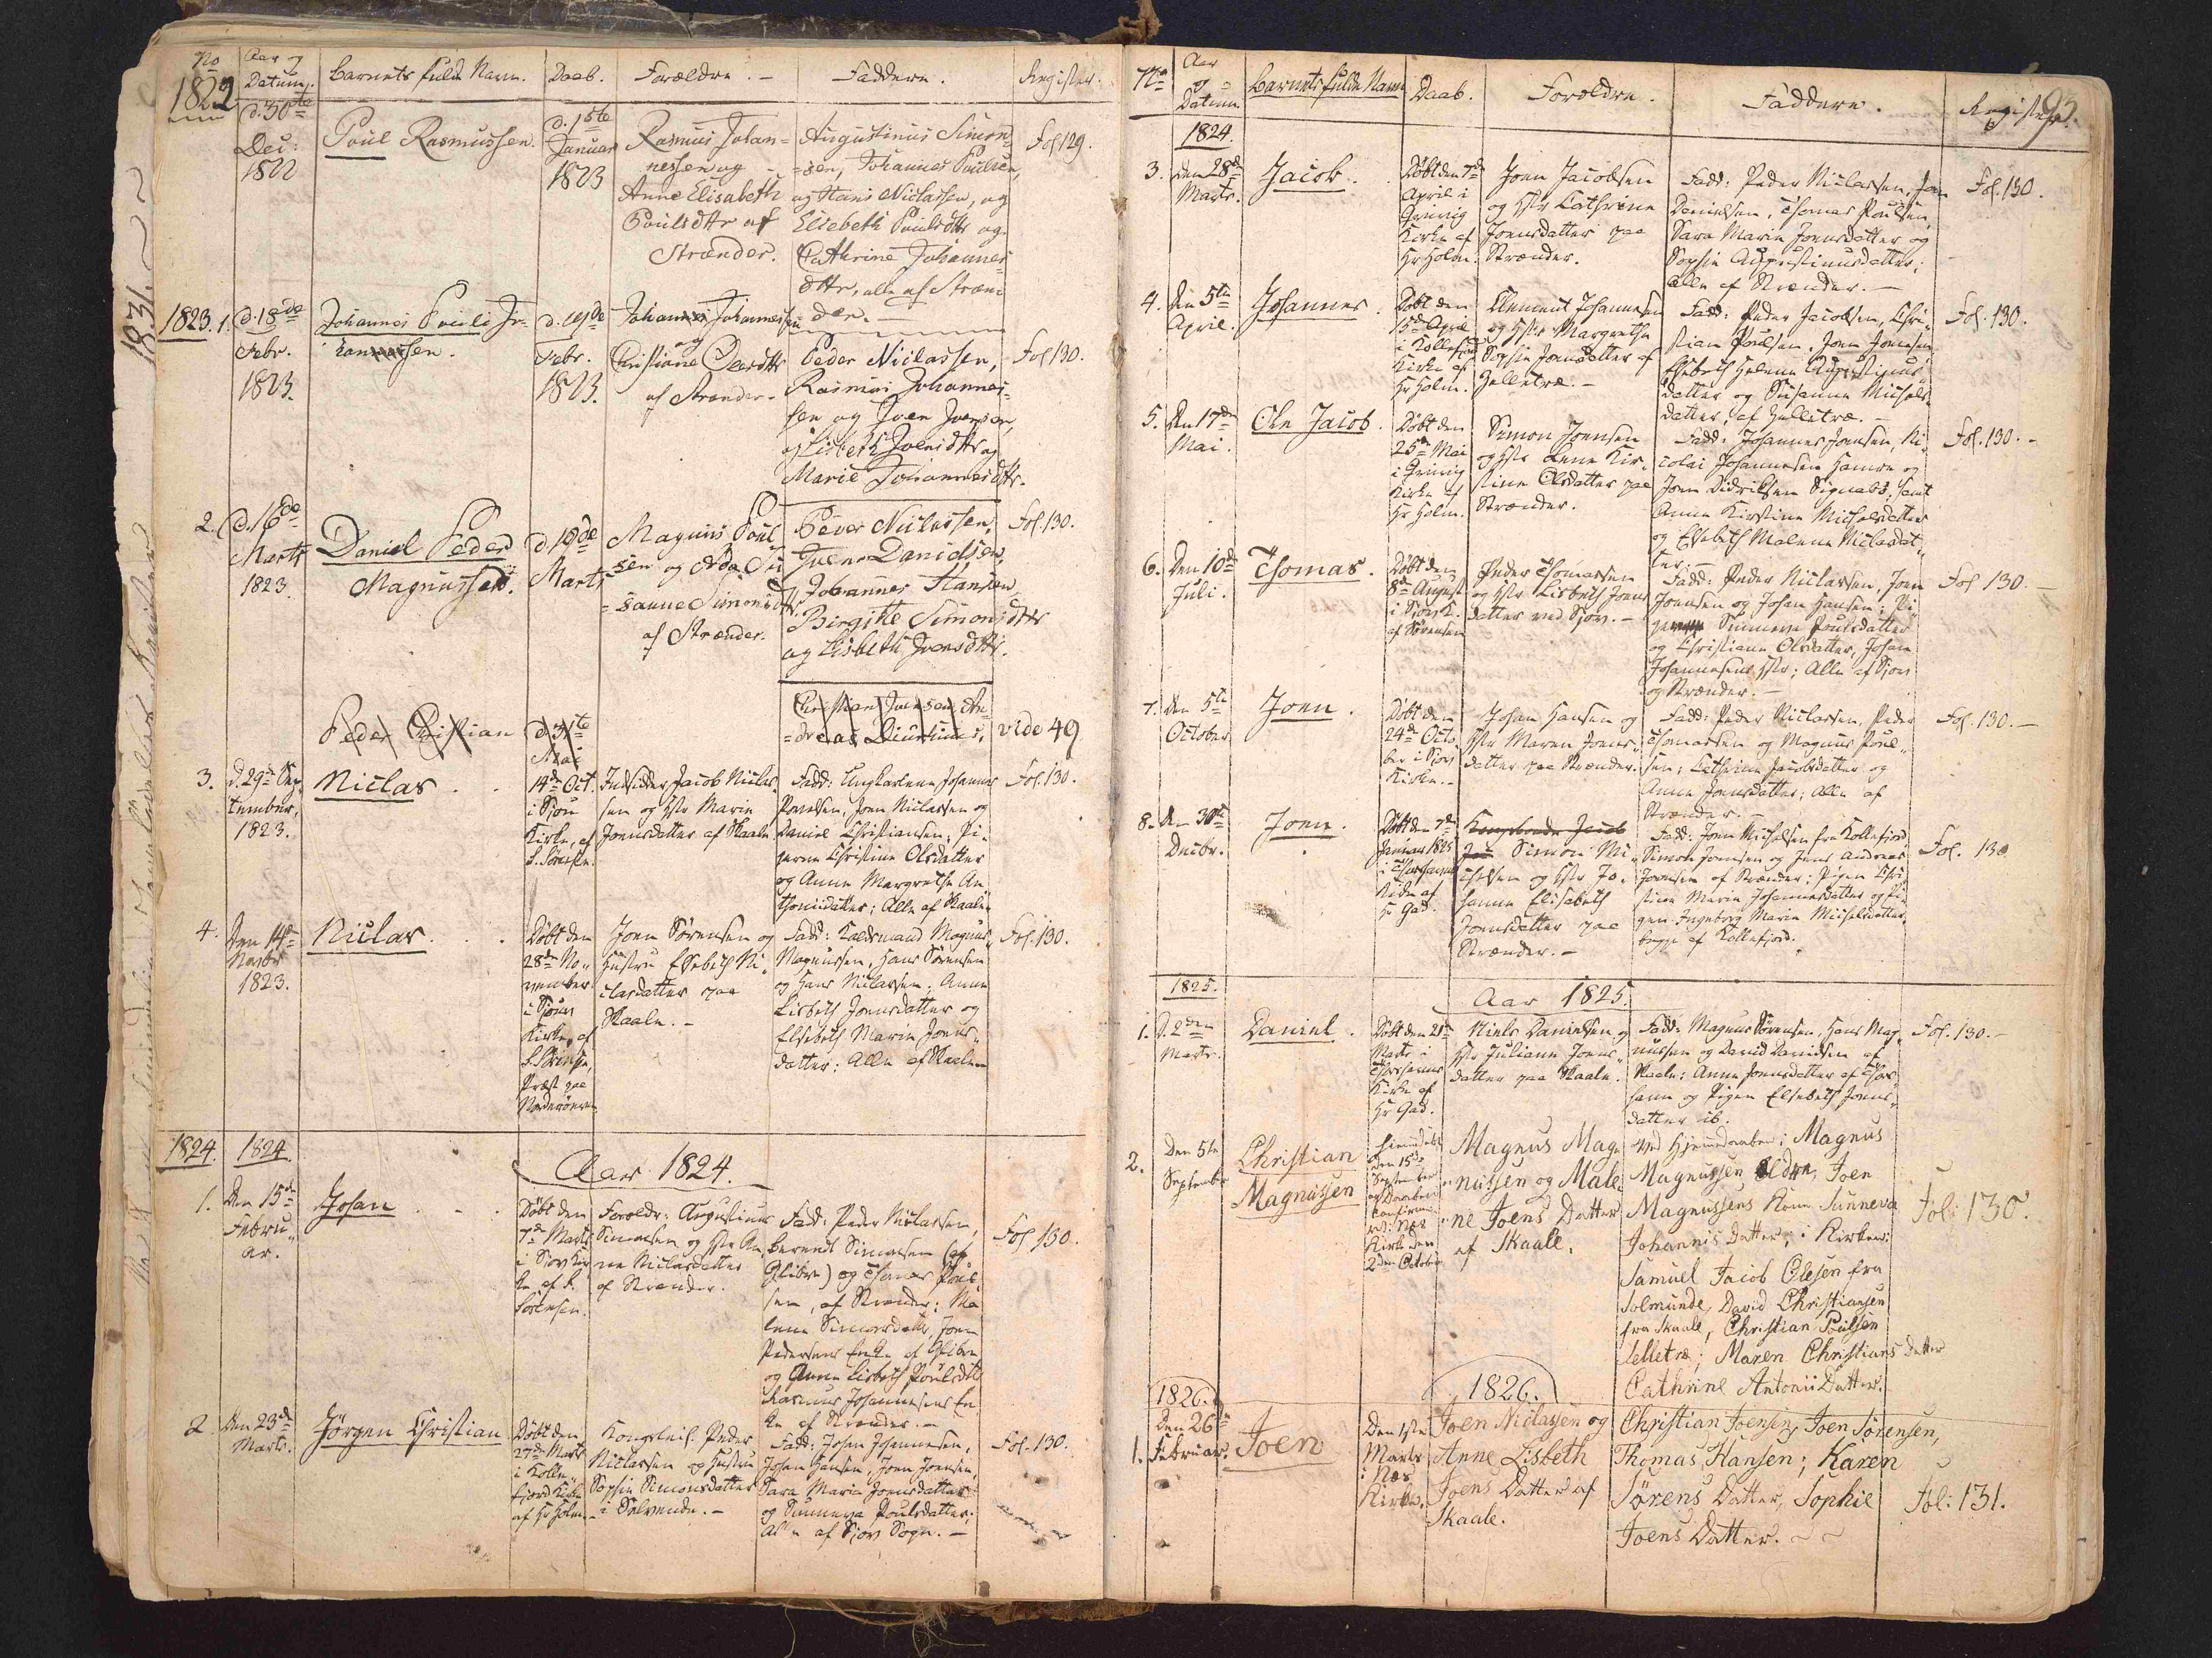 No
Aar og Datum.
Barnets fulde Navn.
Daab.
Forældre. -
Faddere.
Register.
1822
d. 30te
Dec:
1822
Poul Rasmussen.
d. 1ste
Januar
1823
Rasmus Johan=
nessen og
Anne Elisabeth
Poulsdttr af
Strænder.
Augustinus Simon=
=sen, Johannes Poulsen,
og Hans Niclassen, og
Elsebeth Poulsdttr og
Cathrine Johannes=
dttr, alle af Stræn
der.
Fol 129.
1831.
1823. 1.
d. 18de
Febr.
1823.
Johannes Pouli Jo=
sen.
d. 19de
Febr.
1823.
Johannes Johannessen
og
Christiane Olesdttr
af Strænder.
Peder Niclassen,
Rasmus Johannes=
sen og Joen Joensen,
og Lisbeth Joensdttr og
Marie Johannesdttr.
Fol 130.
2.
d. 16de
Marts
1823.
Daniel Peder
Magnussen.
d. 18de
Marts
Magnus Poul
sen og
=sanne Simonsdttr
af Strænder.
Peder Niclassen,
Joen Danielsen,
Johannes Hansen,
Birgitte Simonsdttr
og Lisbeth Joensdttr.
Fol. 130.
Peder Christian
d. 31te
Mai
Christian Joensen An=
=dreas
vide 49
3.
d. 29de Sep=
tember,
1823.
Niclas
14de Oct.
i Siou
Kirke, af
S. Sørensen.
Indsidder Jacob Niclas=
sen og Hstr Marie
Joensdatter af Skaale
Fadd: Ungkarlene Johannes
Poulsen, Joen Niclassen og
Daniel Christiansen; Pi=
gerne Christine Olsdatter
og Anne Margrethe An=
thoniidatter; Alle af Skaale
Fol. 130.
4.
Den 14de
Novbr
1823.
Niclas
Døbt den
28de No=
vember
i Sious
Kirke, af
S. Sørensen,
Præst paa
Norderøerne
Joen Sørensen og
Hustru Elsebeth Ni=
clasdatter paa
Skaale. -
Fadd: Magnus
Magnussen, Hans Sørensen
og Hans Niclassen; Anne
Lisbeth Joensdatter og
Elsebeth Marie Joens=
datter; Alle af Skaale
Fol. 130.
1824.
1824.
Aar 1824.
1.
Den 15de
Febru=
ar.
Johan
Døbt den
7de Marts
i Siov Kir
ke af S.
Sørensen.
Foreldr: Augustinus
Simonsen og Hstr An=
ne Niclasdatter
af Strænder.
Fadd: Peder Niclassen,
Berendt Simonsen (af
Glibre) og Thomas Poul
sen, af Strænder; Ma
lene Simonsdatter, Joen
Pedersens Enke af Glibre
og Anna Lisbeth Poulsdttr
Rasmus Johannesens En
ke af Strænder. -
Fol. 130.
2
Den 23de
Marts.
Jørgen Christian
Døbt den
27de Marts
i Kolle=
fjord Kirke
af Hr Holm.
Kongsleil. Peder
Niclassen og Hustru
Sophie Simonsdatter
i Selvende. -
Fadd: Johan Johannesen,
Johan Hansen, Joen Joensen,
Sara Maria Joensdatter
og Sunneva Poulsdatter;
Alle af Siov Sogn. -
Fol. 130.
No
Aar
og
Datum.
Barnets fulde Navn
Daab.
Forældre.
Faddere.
Register
93.
1824.
3.
Den 28de
Marts.
Jacob.
Døbt den 7de
April i
Qvivig
Kirke af
Hr Holm.
Joen Jacobsen
og Hstr Cathrine
Joensdatter paa
Strænder.
Fadd: Peder Niclassen, Jon
Danielsen, Thomas Poulsen,
Sara Maria Joensdatter og
Sophie Augustinusdatter;
Alle af Strænder. -
Fol. 130.
4.
Den 5te
April.
Johannes.
Døbt den
15de April
i Kollefjord
Kirke af
Hr Holm.
Clement Johannesen
og Hstr Margrethe
Sophie Joensdatter af
Zelletræ. -
Fadd: Peder Jacobsen, Chri=
stian Poulsen, Joen Joensen
Elsebeth Helene Augustinus=
datter og Susanne Michels=
datter, af Zelletræ. -
Fol. 130.
5.
Den 17de
Mai.
Ole Jacob.
Døbt den
25de Mai
i Qvivig
Kirke af
Hr Holm.
Simon Joensen
og Hstr Anne Kir=
stine Olsdatter paa
Strænder.
Fadd: Johannes Joensen, Ni=
colai Johannesen Hamre og
Joen Didriksen Signabø, samt
Anne Kirstine Michelsdatter
og Elsebeth Malene Niclasdat=
ter. -
Fol. 130. -
6.
Den 10de
Juli.
Thomas.
Døbt den
8de August
i Siov K.
af Sørensen
Peder Thomassen
og Hstr Lisbeth Joens
datter ved Siov. -
Fadd: Peder Niclassen, Joen
Joensen og Johan Hansen; Pi=
gerne Sunneva Poulsdatter
og Christiane Olsdatter, Johan
Johannesens Hstr; Alle af Siov
og Strænder. -
Fol 130. -
7.
Den 5te
October
Joen.
Døbt den
24de Octo=
ber i Siov
Kirke. -
Johan Hansen og
Hstr Maren Joens=
datter paa Strænder.
Fadd: Peder Niclassen, Peder
Thomassen og Magnus Poul=
sen; Cathrine Jacobsdatter og
Anne Joensdatter; Alle af
Strænder. -
Fol. 130. -
8.
Den 30te
Decbr.
Joen.
Døbt den 7de
Januar 1825
i Thorshavns
Kirke af
Hr Gad.
Kongsbonde Jacob
Simon Mi=
chelsen og Hstr Jo=
hanne Elisabeth
Joensdatter paa
Strænder. -
Fadd: Joen Michelsen fra Kollefjord,
Simon Joensen og Jens Andreas
Joensen af Strænder; Pigen Chri
stine Maria Johannesdatter og Pi=
gen Ingeborg Marie Michelsdatter
begge af Kollefjord.
Fol. 130
1825.
Aar 1825.
1.
D. 2den
Marts.
Daniel.
Døbt den 21de
Marts i
Thorshavns
Kirke af
Hr Gad.
Niels Danielsen og
Hstr Juliane Joens=
datter paa Skaale.
Fadd: Magnus Sørensen, Hans Mag=
nussen og David Davidsen af
Skaale; Anne Joensdatter af Thors=
havn og Pigen Elsebeth Joens=
datter ib.
Fol. 130. -
2.
Den 5te
September
Christian
Magnussen
hiemdøbt
den 15de
September
og Daaben
confirme
ret i Næs
Kirke den
2den October
Magnus Mag=
=nussen og Male=
=ne Joens Datter
af Skaale.
Ved Hjemmedaaben: Magnus
Magnussen ældre, Joen
Magnussens Kone Sunneva
Johannis Datter; i Kirken:
Samuel Jacob Olesen fra
Solmunde, David Christiansen
fra Skaale, Christian Poulsen
Selletræ; Maren Christians Datter
Cathrine Antonii Datter.
Fol: 130.
1826.
1826.
1.
Den 26de
Februar.
Joen
Den 1ste
Marts
i Næs
Kirke.
Joen Niclassen og
Anne Lisbeth
Joens Datter af
Skaale.
Christian Joensen, Joen Sørensen,
Thomas Hansen; Karen
Sørens Datter, Sophie
Joens Datter.
Fol: 131.